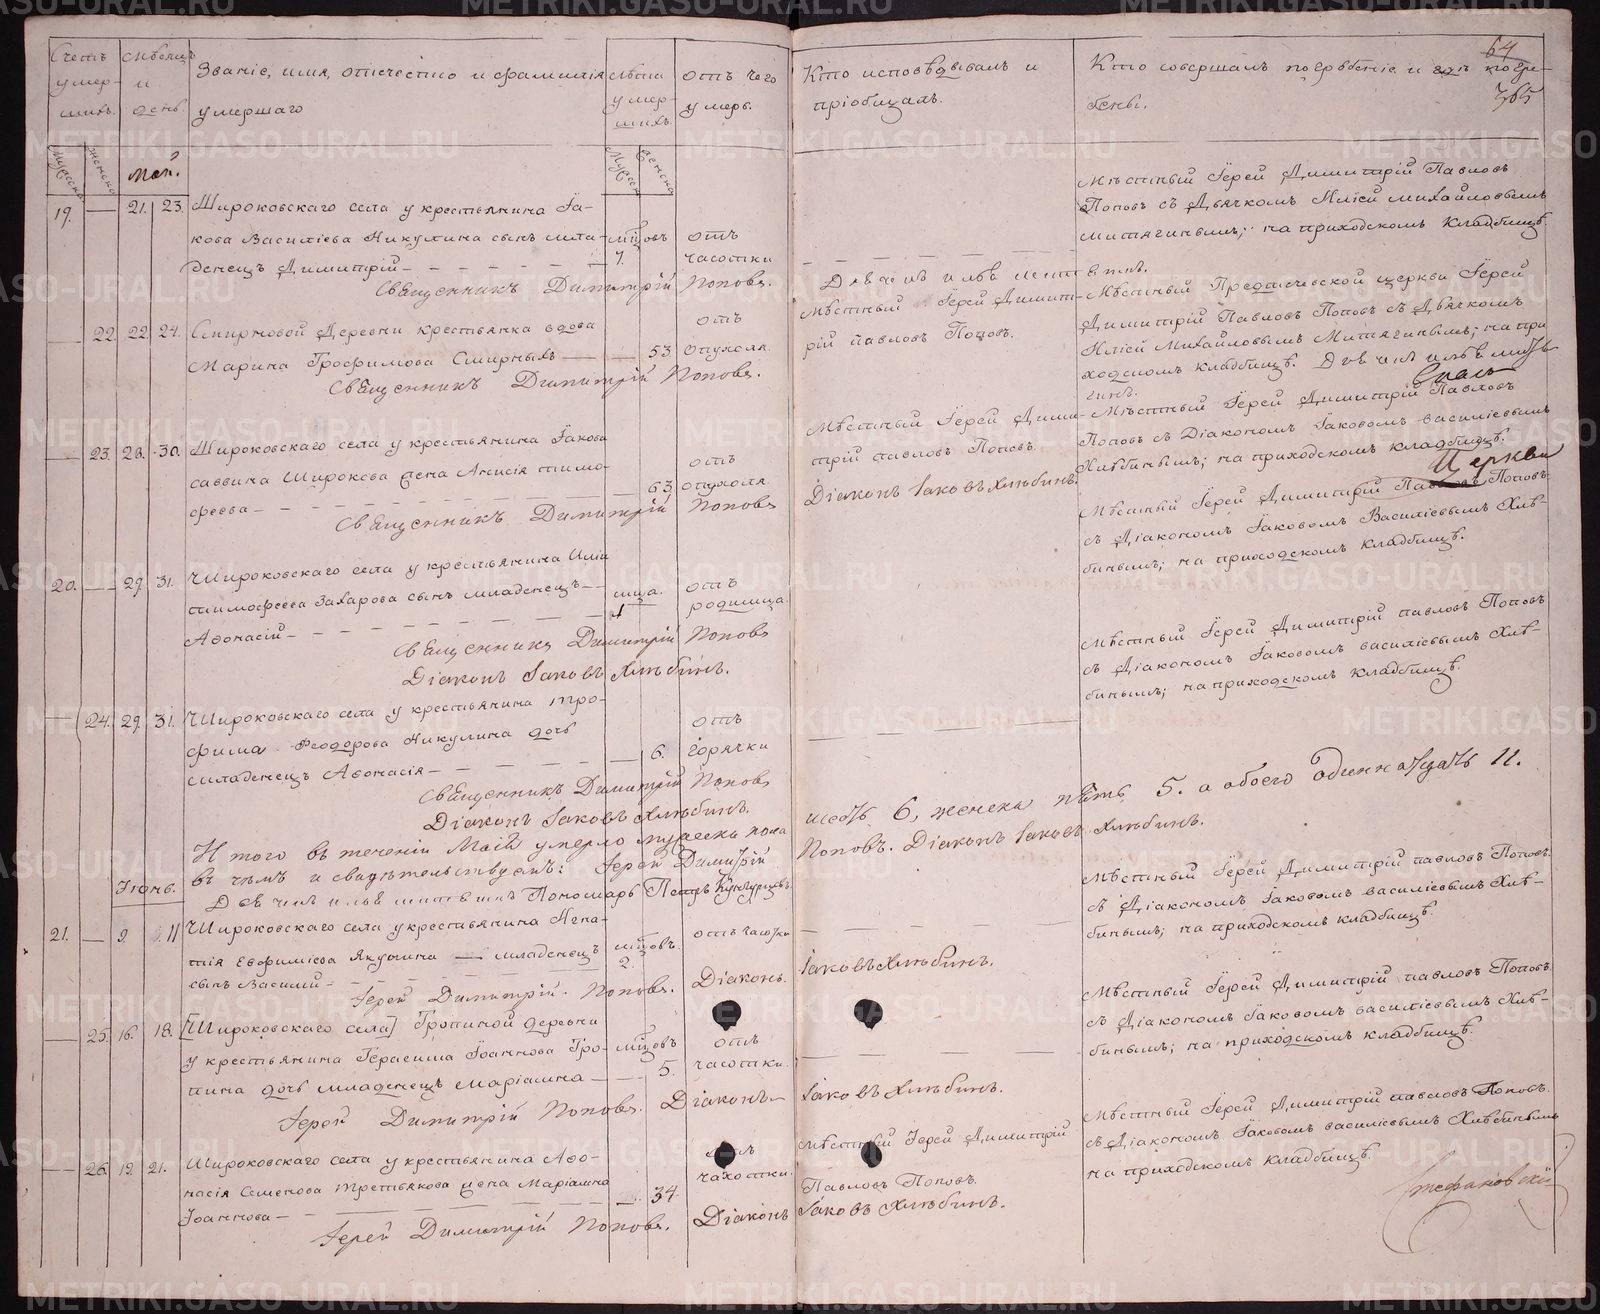 64
365
Счетъ умер-шихъ.
Мѣсяцъ и день.
Званіе, имя, отчество и фамилія умершаго
Лѣта умер-шихъ.
отъ чего умеръ.
Кто исповѣдывалъ и пріобщалъ.
Кто совершалъ погребеніе и гдѣ погре-бены.
Мужска
женска
Май.
Мужска
женска
19. — 21. 23. Широковскаго села у крестьянина Іа-
кова Василіева Никулина сынъ мла-
денецъ Димитрій
мцовъ 7.
отъ часотки
Мѣстный Іерей Димитрій Павловъ
Поповъ съ Дьячкомъ Иліей Михайловымъ
Митягинымъ; на приходскомъ Кладбищѣ.
Священникъ Димитрій Поповъ.
— 22. 22. 24. Смирновой Деревни крестьянка вдова
Марина Трофимова Смирныхъ
53.
отъ опухоля
Мѣстный Іерей Димит-
рій Павловъ Поповъ.
Мѣстный Предтечевской церкви Іерей
Димитрій Павловъ Поповъ съ Дьячкомъ
Иліей Михайловымъ Митягинымъ; на при
ходскомъ кладбищѣ.
Священникъ Димитрій Поповъ.
— 23. 28. 30. Широковскаго села у крестьянина Іакова
Саввина Широкова жена Анисія Тимо-
феева
63.
отъ опухоля
Мѣстный Іерей Дими-
трій Павловъ Поповъ.
Мѣстный Іерей Димитрій Павловъ
Поповъ съ Діакономъ Іаковомъ Василіевымъ
Хлѣбинымъ; на приходскомъ кладбищѣ.
Священникъ Димитрій Поповъ
Діаконъ Іаковъ Хлѣбинъ.
Церкви
20. — 29. 31. Широковскаго села у крестьянина Иліи
Тимофеева Захарова сынъ младенецъ
Афонасій
отъ родимца.
Мѣстный Іерей Димитрій Павловъ Поповъ
съ Діакономъ Іаковомъ Василіевымъ Хлѣ-
бинымъ; на приходскомъ Кладбищѣ.
Священникъ Димитрій Поповъ
Діаконъ Іаковъ Хлѣбинъ.
— 24. 29. 31. Широковскаго села у крестьянина Тро-
фима Феодорова Никулина дочь
младенецъ Афонасія
6.
отъ горячки
Мѣстный Іерей Димитрій Павловъ Поповъ
съ Діакономъ Іаковомъ Василіевымъ Хлѣ-
бинымъ; на приходскомъ Кладбищѣ.
Священникъ Димитрій Поповъ
Діаконъ Іаковъ Хлѣбинъ.
Итого въ теченіи Маія умерло мужеска пола шесть 6, женска пять 5. а обоего одиннадцать 11.
въ чемъ и свидѣтельствуемъ: Іерей Димитрій Поповъ. Діаконъ Іаковъ Хлѣбинъ.
Пономарь Петръ Кунгурцевъ
Іюнь.
21. — 9. 11 Широковскаго села у крестьянина Игна-
тія Евфиміева Якунина младенецъ
сынъ Василій
мцовъ. 2.
отъ часотки
Мѣстный Іерей Димитрій Павловъ Поповъ.
съ Діакономъ Іаковомъ Василіевымъ Хлѣ-
бинымъ; на приходскомъ кладбищѣ.
Іерей Димитрій Поповъ. Діаконъ Іаковъ Хлѣбинъ.
— 25. 16. 18. [Широковскаго села] Тропиной деревни
у крестьянина Герасима Іоаннова Тро-
пина дочь младенецъ Маріамна
мцовъ 5.
отъ часотки.
Мѣстный Іерей Димитрій Павловъ Поповъ
съ Діакономъ Іаковомъ Василіевымъ Хлѣ-
бинымъ; на приходскомъ кладбищѣ.
Іерей Димитрій Поповъ. Діаконъ Іаковъ Хлѣбинъ.
— 26. 19. 21. Широковскаго села у крестьянина Афо-
насія Семенова Третьякова жена Маріамна
Іоаннова
34.
отъ чахотки.
Мѣстный Іерей Димитрій
Павловъ Поповъ.
Мѣстный Іерей Димитрій Павловъ Поповъ.
съ Діакономъ Іаковомъ Василіевымъ Хлѣбинымъ
на приходскомъ кладбищѣ.
Іерей Димитрій Поповъ. Діаконъ Іаковъ Хлѣбинъ.
METRIKI.GASO-URAL.RU